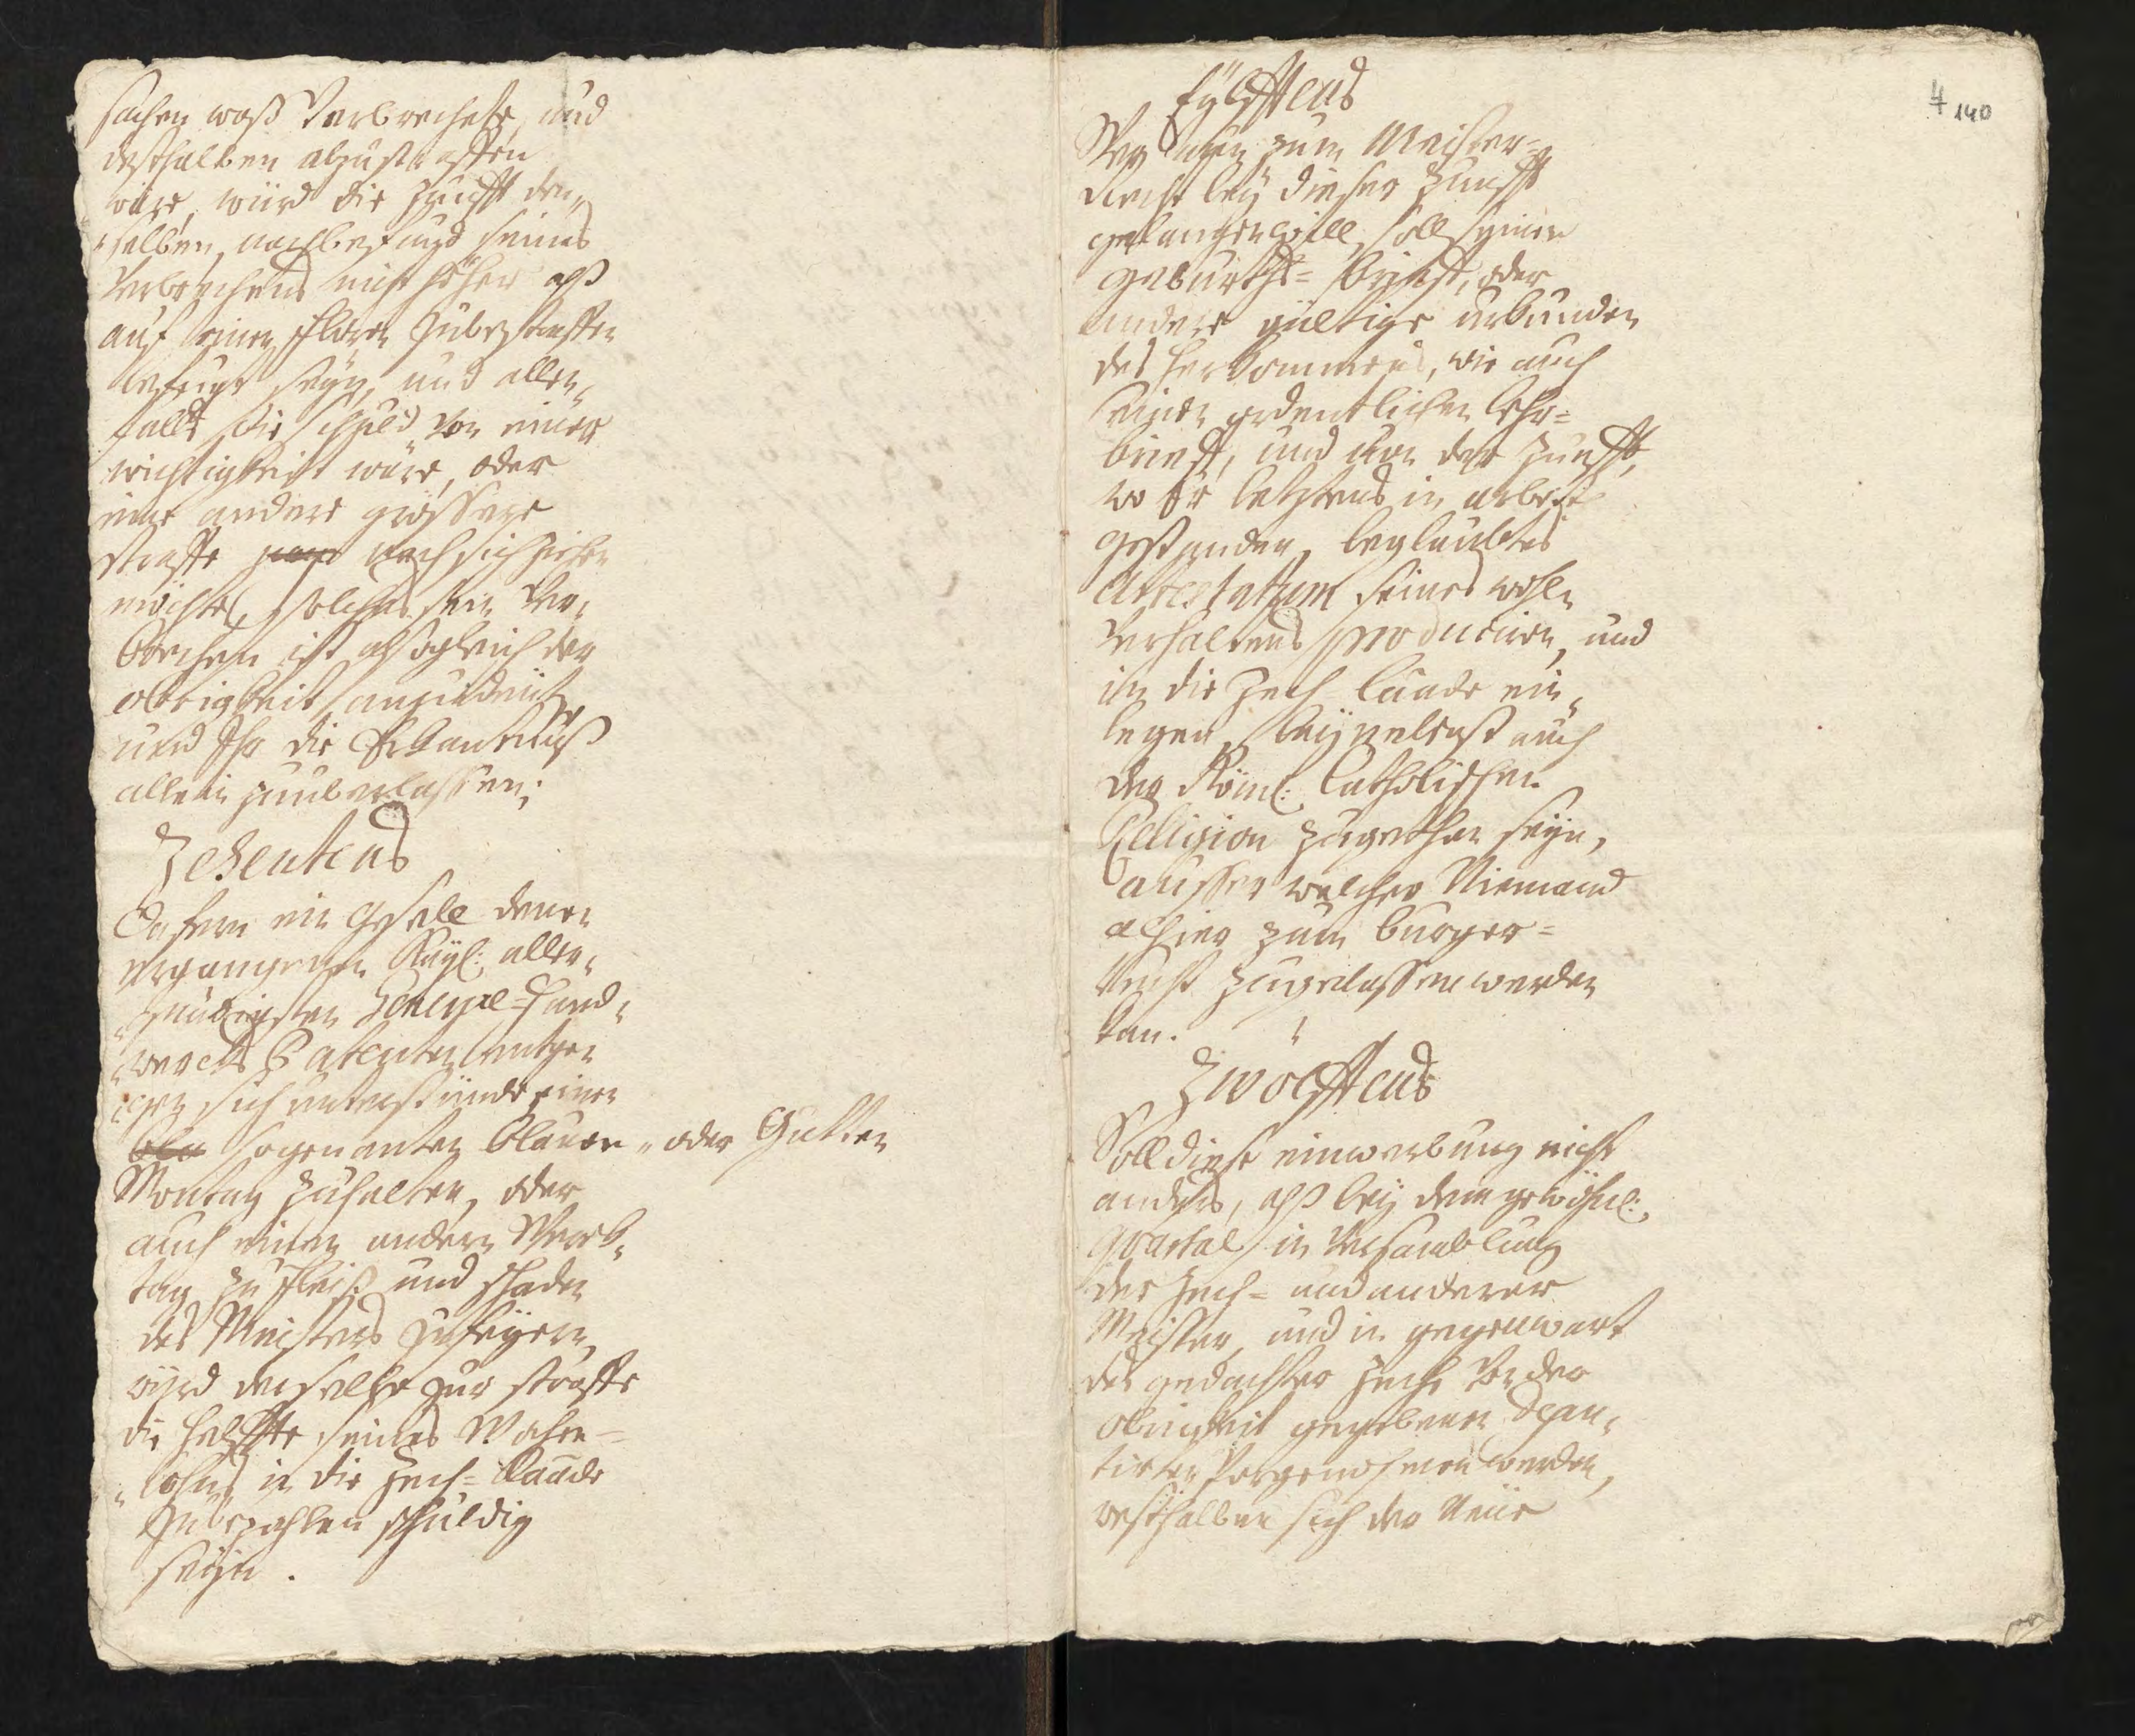 sachen waß Verbrechete, und
desthalben abzustraffen
wäre, würd die Zunfft den„
„selben, nach befund seines
Verbrechens nicht höher alß
auf einen fl: zubestraffen
befugt seyn, und allen„
falls die schuld von einer
wichtigkeit wäre, oder
eine andere grössere
straffe nach sich ziehen
möchte, solches sein Ver„
brechen ist alsogleich der
obrigkeit anzudeüten
und Ihr die Erkantnuß
allein zuüberlassen;
Zehentens
Dafern ein gesell denen
ergangenen Kayl: aller„
„gnädigsten General=Hand„
„wercks Patenten entge„
„gen sich unterstünde einen
bla sogenanten blauen „oder Gutten
Montag zuhalten, oder
auch einen andern Werk„
tag zu fleiß und schaden
des Meisters zufeyern,
wyrd derselbe zur straffe
die helffte seines Wochen=
„lohns in die Zech=Laade
zubezahlen schuldig
seyn.
Eÿlfftens
Wer nun zum Meister=
Recht beÿ dieser Zunfft
gelangen will, soll seinen
geburths=brieff, oder
andere gültige urkunden
des herkommens, wie auch
seinen ordentlichen Lehr=
brieff, und von der Zunfft,
wo Er letztens in arbeit
gestanden, beglaubtes
Attestatum seines wohl„
verhaltens produciren, und
in die Zech Laade ein„
legen, beÿnebenst auch
der Röm: Catholischen
Religion zugethan seÿn,
ausser welcher Niemand
alhier zum burger=
recht zugelassen werden
kan.
Zwölfftens
Soll diese einwerbung nicht
anders, alß beÿ dem gewöhnl:
Quartal in Versamblung
der Zech= und anderer
Meister, und in gegenwart
des gedachter Zech von der
obrigkeit gegebenen Depu„
tirten Vorgenohmen werden,
westhalben sich der Neüe
4 140